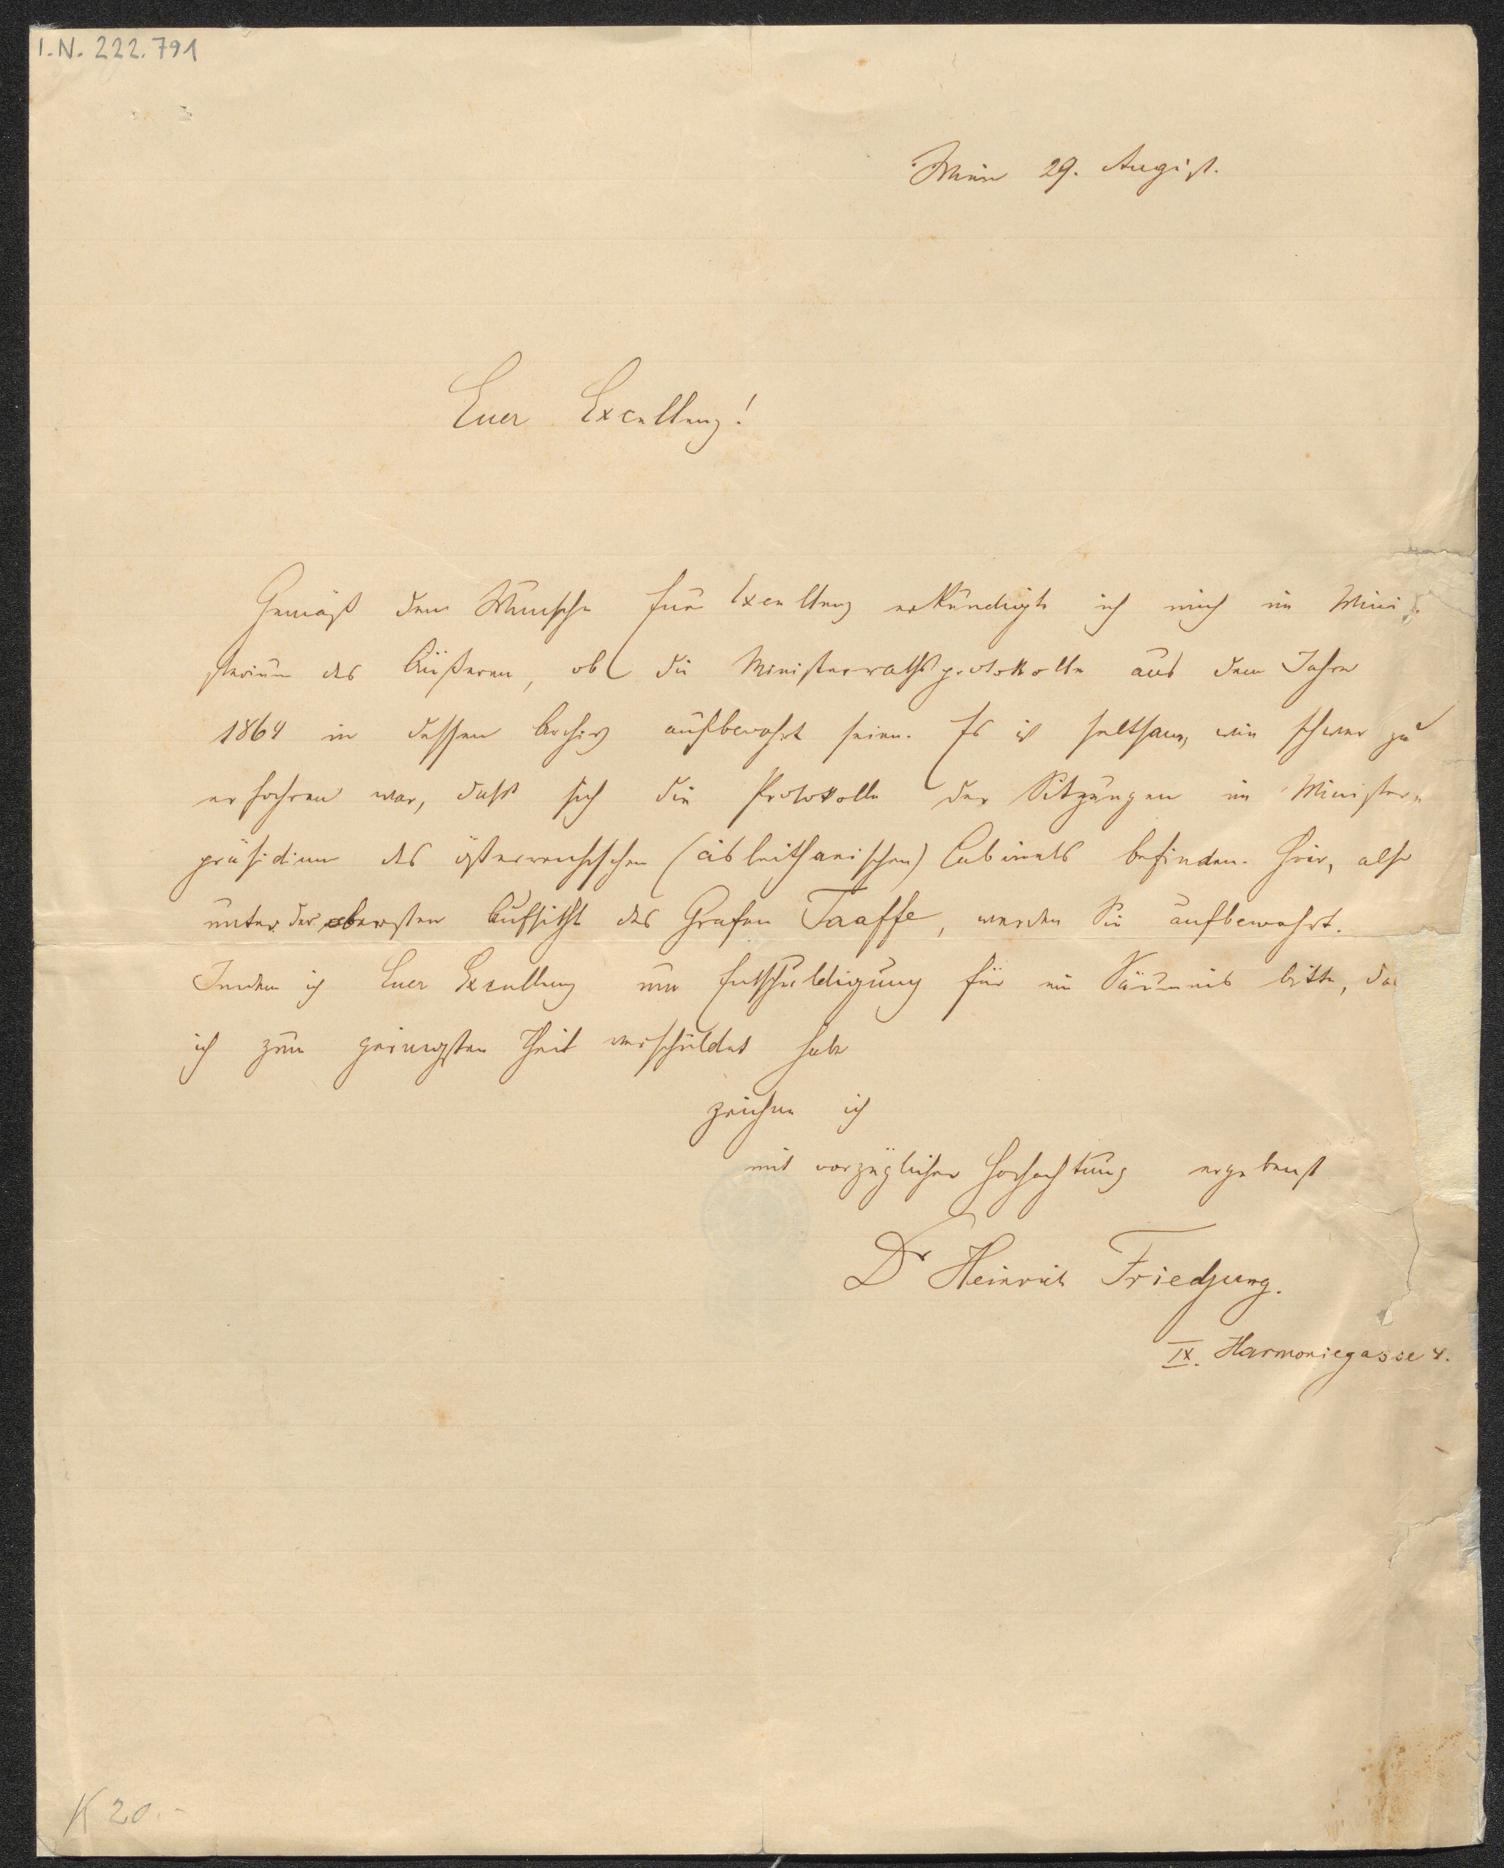 I.N. 222.791
Wien 29. August.
Euer Excellenz!
Gemäß dem Wunsche Eurer Excellenz erkundigte ich mich im Mini-
sterium des Äußeren, ob die Ministerrathsprotokolle aus dem Jahre
1864 in dessen Archiv aufbewahrt seien. Es ist seltsam, wie schwer zu
erfahren war, daß sich die Protokolle der Sitzungen im Minister-
präsidium des österreichischen (cisleithanischen) Cabinets befinden. Hier, also
unter der obersten Aufsicht des Grafen Taaffe, werden Sie aufbewahrt.
Indem ich Euer Excellenz um Entschuldigung für ein Säumnis bitte, das
ich zum geringsten Theil verschuldet habe
zeichne ich
mit vorzüglicher Hochachtung ergebenst
Dr Heinrich Friedjung.
IX. Harmoniegasse 4.
K 20.-